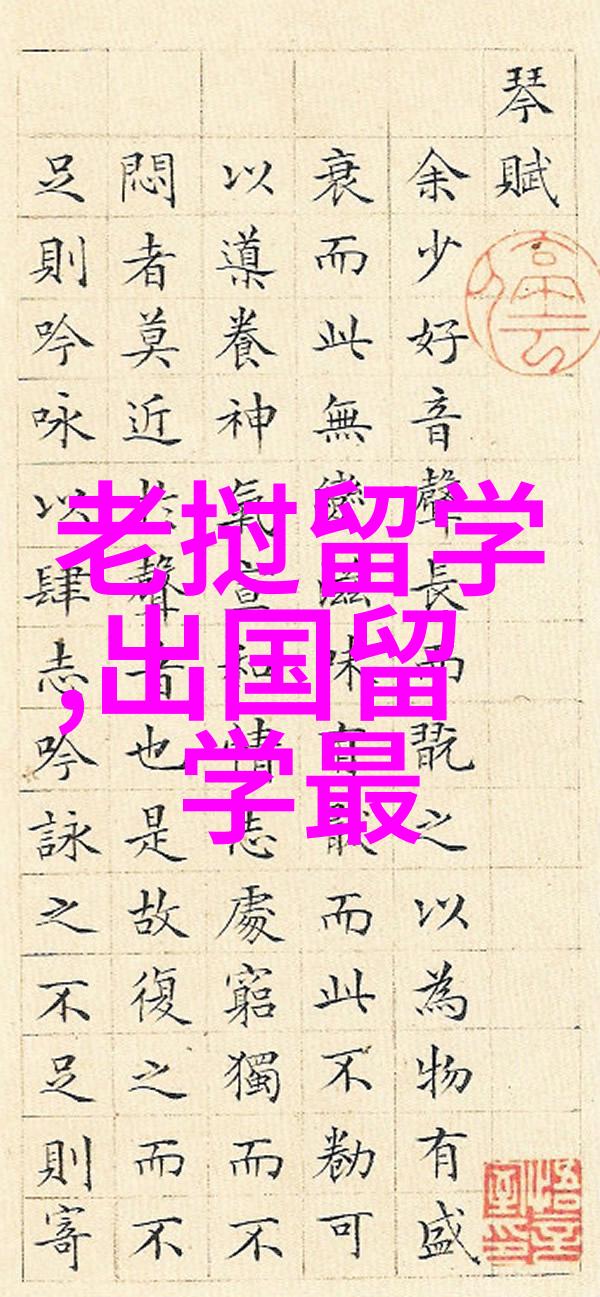 琴賦
余少好音聲長而翫之以為物有盛
衰而此無變滋味有猒而此不勌可
以導養神氣宣和情志處窮獨而不
悶者莫近於聲音也是故復之而不
足則吟咏以肆志吟詠之不足則寄
老挝留学
,出国留
学最